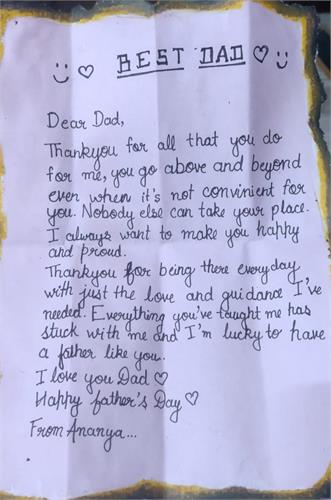 ☺ ♡ BEST DAD ♡ ☺
Dear Dad,
Thankyou for all that you do
for me, you go above and beyond
even when it's not convinient for
you. Nobody else can take your place.
I always want to make you happy
and proud.
Thankyou for being there everyday
with just the love and guidance I've
needed. Everything you've taught me has
stuck with me and I'm lucky to have
a father like you.
I love you Dad ♡
Happy father's Day ♡
From Ananya...